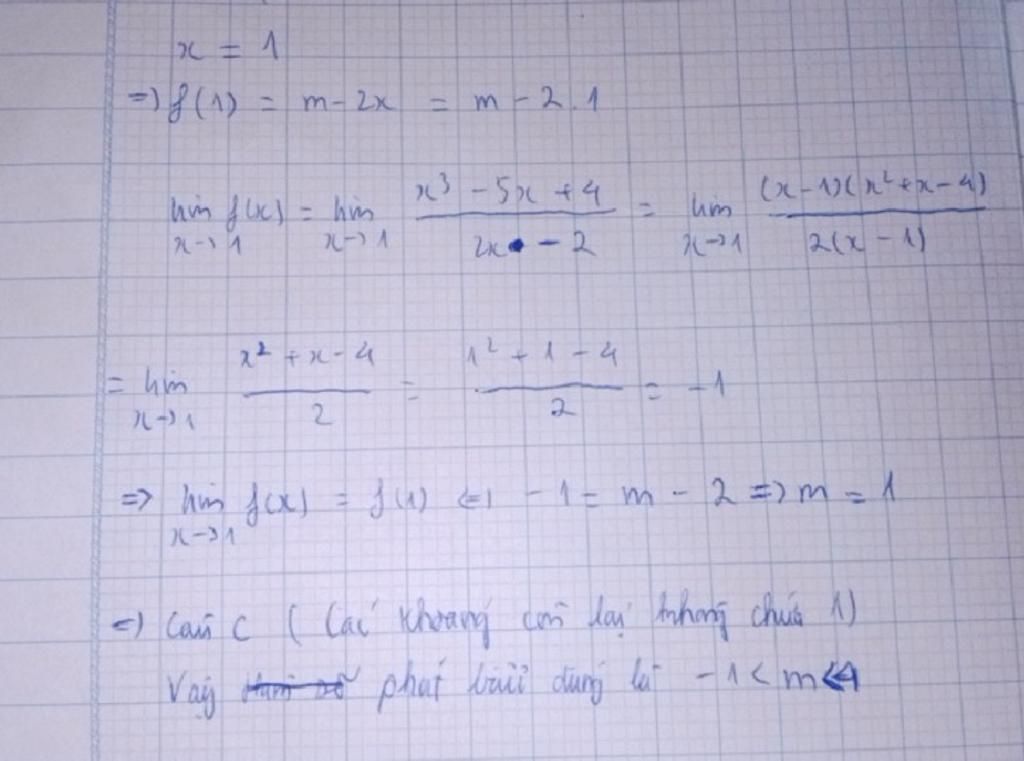 x = 1
=> f(1) = m - 2x = m - 2.1
lim x->1 f(x) = lim x->1 (x³ - 5x + 4)/(2x - 2) = lim x->1 (x-1)(x²+x-4)/2(x-1)
= lim x->1 (x² + x - 4)/2 = (1² + 1 - 4)/2 = -1
=> lim x->1 f(x) = f(1) <=> -1 = m - 2 => m = 1
=> Câu C (Các khoảng còn lại không chứa 1)
Vậy phát biểu đúng là -1 < m < 4